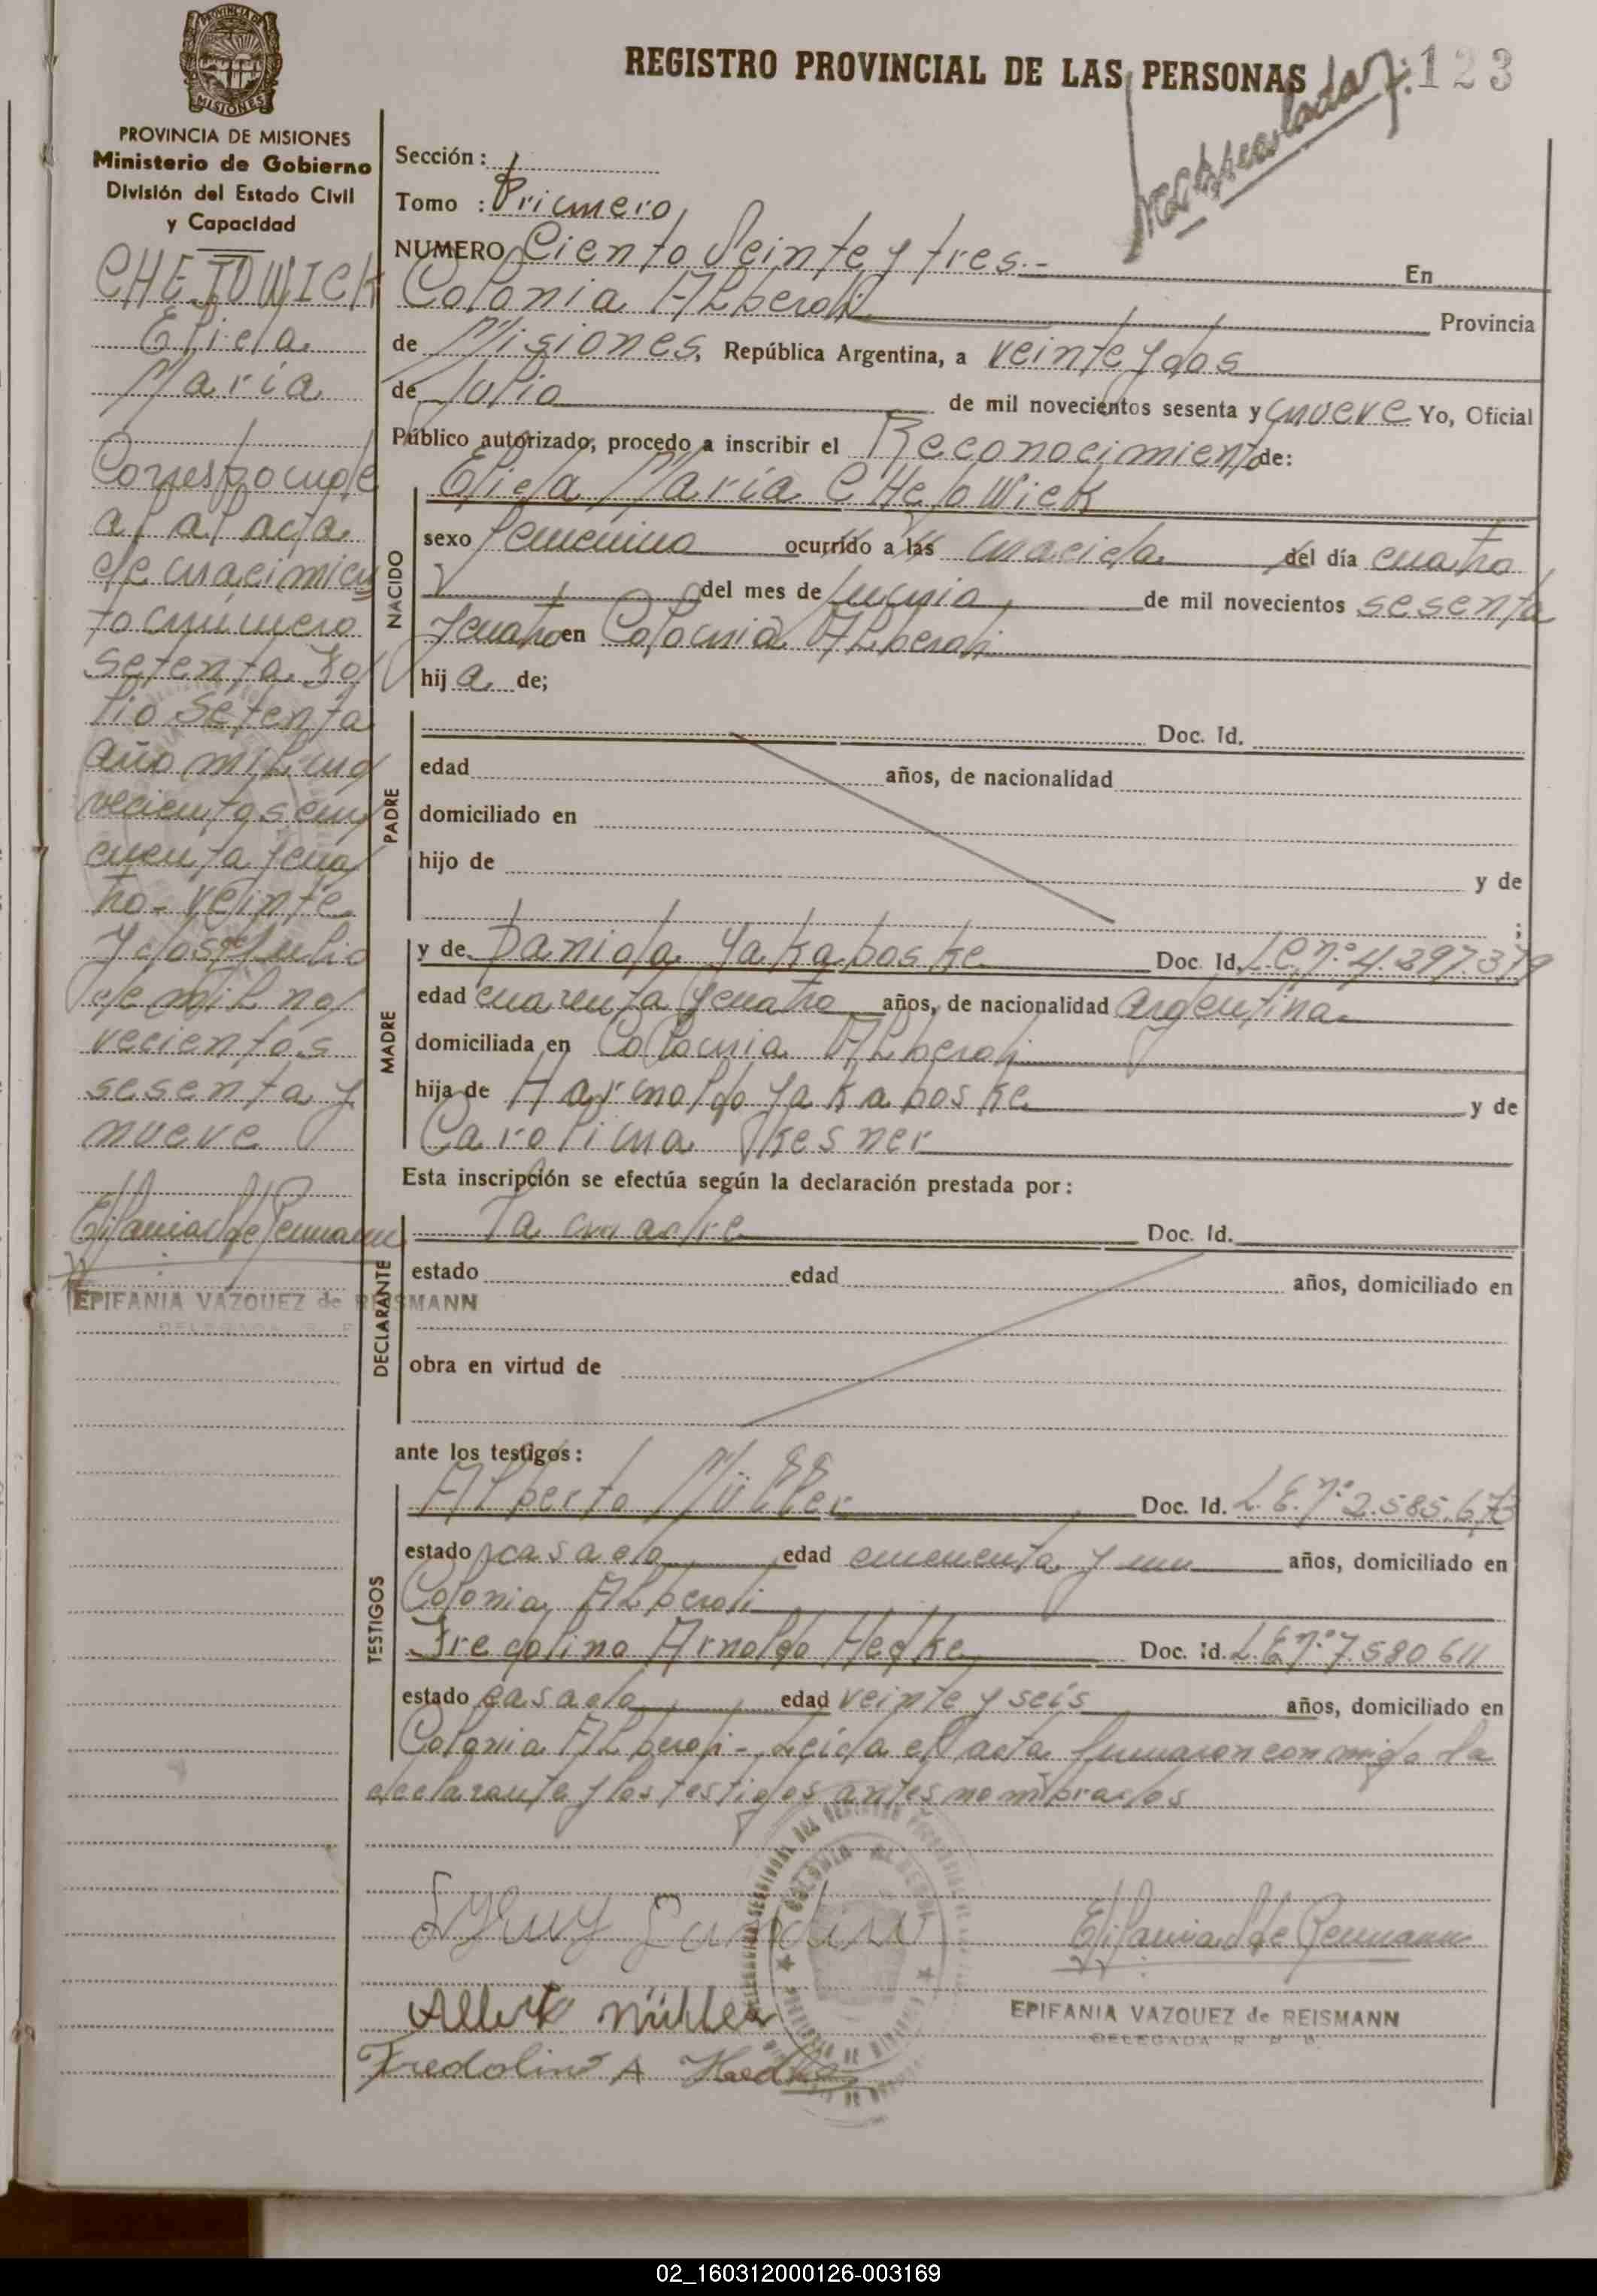 PROVINCIA DE MISIONES
MISIONES
PROVINCIA DE MISIONES
Ministerio de Gobierno
División del Estado Civil
y Capacidad
CHEJOWICK
Elida
María
Corresponde
al al acta
de nacimien
to número
setenta Fo
lio setenta
año mil no
vecientos
cuenta y cua
tro - veinte
y dos Julio
de mil no
vecientos
sesenta y
nueve
EPIFANIA VAZQUEZ de REISMANN
DELEGADA R. P.
REGISTRO PROVINCIAL DE LAS PERSONAS
123
Sección : 1
Tomo : Primero
NUMERO Ciento Veinte y tres.- En
Colonia Alberdi Provincia
de Misiones, República Argentina, a veinte y dos
de Julio de mil novecientos sesenta y nueve Yo, Oficial
Público autorizado, procedo a inscribir el Reconocimiento de:
Elida María CHejoWicK
NACIDO
sexo femenino ocurrido a las nacida del día cuatro
del mes de Junio, de mil novecientos sesenta
y cuatro en Colonia Alberdi
hij a de;
PADRE
Doc. Id.
edad años, de nacionalidad
domiciliado en
hijo de y de
;
MADRE
y de Daniela Yakaboske Doc. Id. L.C. n.° 4.297.379
edad cuarenta y cuatro años, de nacionalidad argentina
domiciliada en Colonia Alberdi
hija de Harnoldo Yakaboske y de
Carolina Kesner
Esta inscripción se efectúa según la declaración prestada por :
DECLARANTE
la madre Doc. Id.
estado edad años, domiciliado en
obra en virtud de
ante los testigos :
TESTIGOS
Alberto Müller Doc. Id. L.E. n.° 2.585.673
estado casado edad cincuenta y un años, domiciliado en
Colonia Alberdi
Fredolino Arnoldo Hedke Doc. Id. L.E. n.° 7.580611
estado casado edad veinte y seis años, domiciliado en
Colonia Alberdi - Leída el acta firmaron conmigo la
declarante y los testigos antes nombrados
Albert Mühler
Fredolino A Hedke
EPIFANIA VAZQUEZ de REISMANN
DELEGADA R. P. P.
02_160312000126-003169